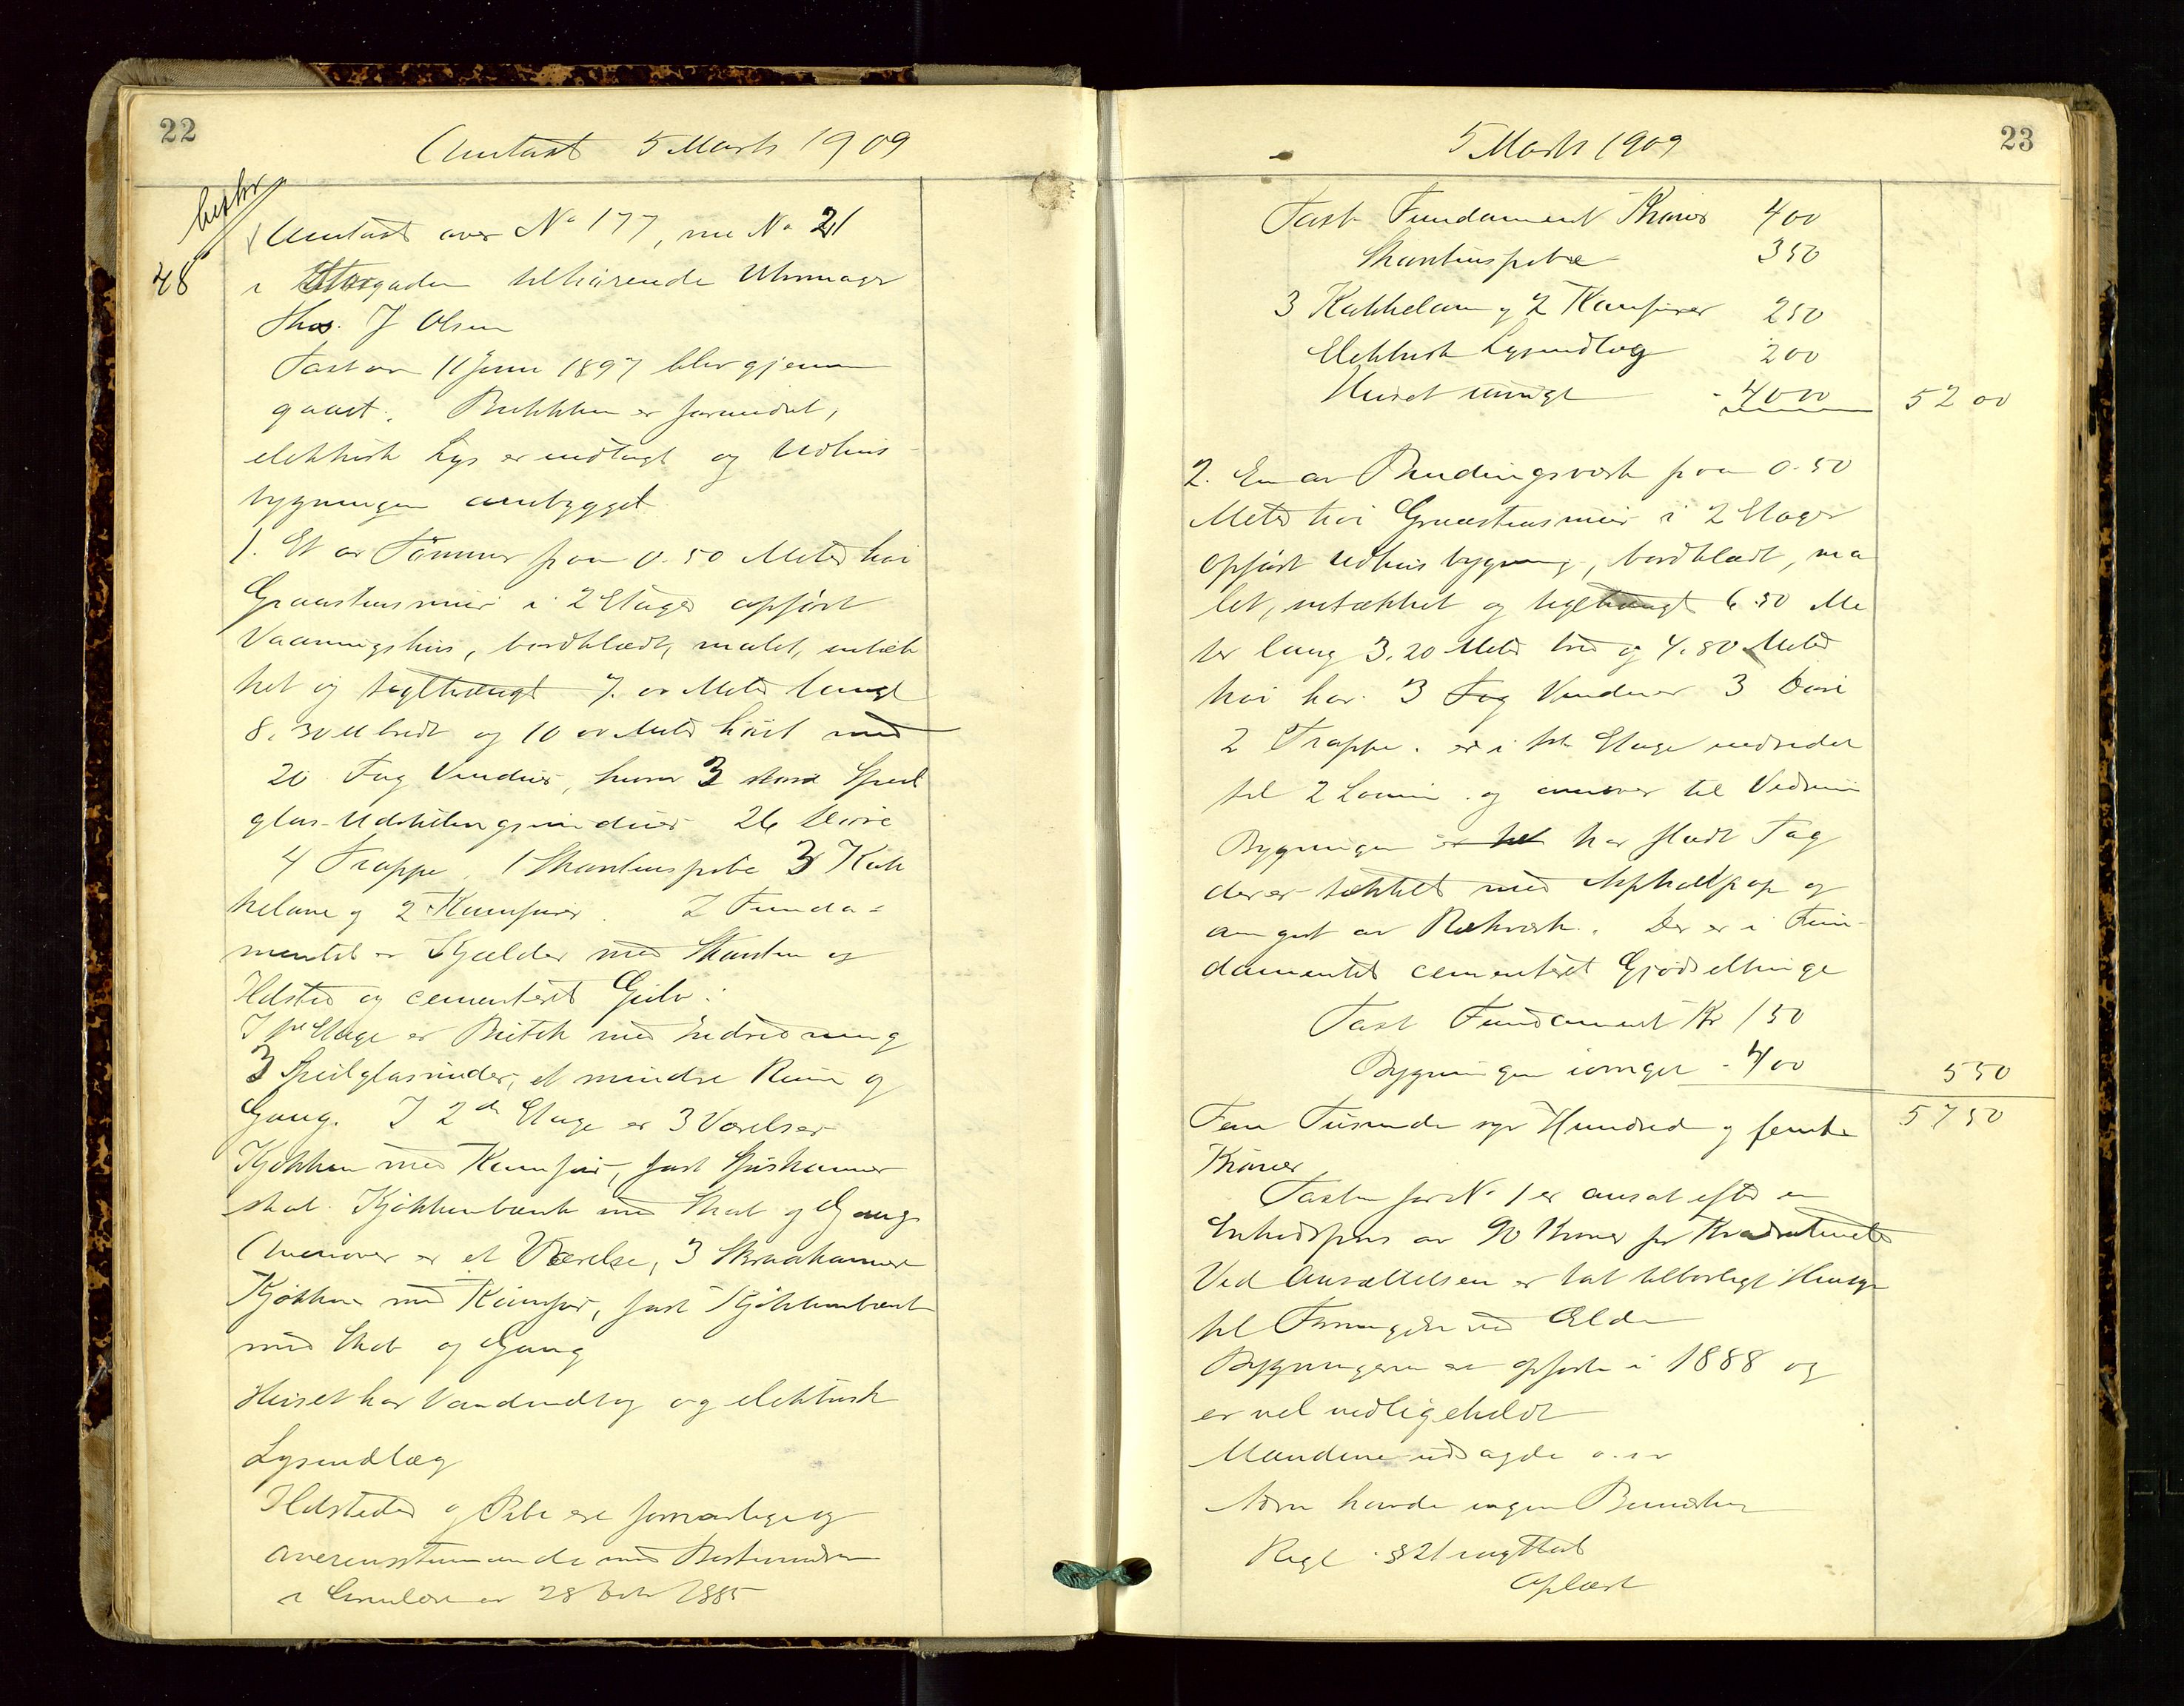 22
Omtaxt 5 Marts 1909
beskr
48
Omtaxt over No 177, nu No 21
i Storgaden tilhørende Uhrmager
Thos. J Olsen
Taxt av 11 Juni 1897 blev gjennem
gaaet. Butikken er forandret,
elektrisk Lys er indlagt og Udhus-
bygningen ombygget
1. Et av Tømmer paa 0.50 Meter høi
Graastensmur i 2 Etager opført
Vaaningshus, bordklædt, malet, nütæk
ket og teglhængt 7. oo Meter langt
8.30 M bredt og 10 oo Meter høit med
20 Fag Vinduer, hvorav 3 store Speil
glas-Udstillingsvinduer 26 Døre
4 Trappe, 1 Skorstenspibe 3 Kak
kelovne og 2 Komfurer. I Funda-
mentet er Kjælder med Skorsten og
Ildsted og cementeret Gulv.
I 1ste Etage er Butik med Indredning
3 Speilglasvinduer, et mindre Rum og
Gang. I 2den Etage er 3 Værelser
Kjøkken med Komfur, fast Spiskammer
skab. Kjøkkenbænk med Skab og Gang
Ovenover er et Værelse, 3 Skraakammere
Kjøkken med Komfur, fast Kjøkkenbænk
med Skab og Gang
Huset har Vandindlæg og elektrisk
Lysindlæg
Ildsteder og Pibe ere forsvarlige og
overensstemmende med Bestemmelsen
i Cirkulære av 28 Octr 1885
23
5 Marts 1909
Taxt Fundament Kroner 400
Skorstenspibe 350
3 Kakkelovn og 2 Komfurer 250
Elektrisk Lysindlæg 200
Huset øvrigt - 4000 5200
2. En av Bindingsværk paa 0.50
Meter høi Graastensmur i 2 Etager
opført Udhusbygning, bordklædt, ma
let, nütækket og teglhængt 6.50 Me
ter lang 3.20 Meter bred og 4.80 Meter
høi har 3 Fag Vinduer 3 Døre
2 Trappe. er i 1ste Etage indredet
til 2 og ovenover til
Bygningen er har fladt Tag
der er tækket med Asphaltpap og
omgivet av Rækværk. Der er i Fun-
damentet cementeret Gjødselbinge
Taxt Fundament Kr 150
Bygningen iøvrigt - 400 550
Fem Tusinde syv Hundred og femti 5750
Kroner
Taxten for No 1 er ansat efter en
Enhedspris av 90 Kroner pr Kvadratmeter
Ved Ansættelsen er tat tilbørligt Hensyn
til Forringelse ved Ælde
Bygningerne er opførte i 1888 og
er vel vedligeholdt
Mændene udsagde o.s.v
havde ingen Bemærkning
Regl § 21 iagttat
Oplæst